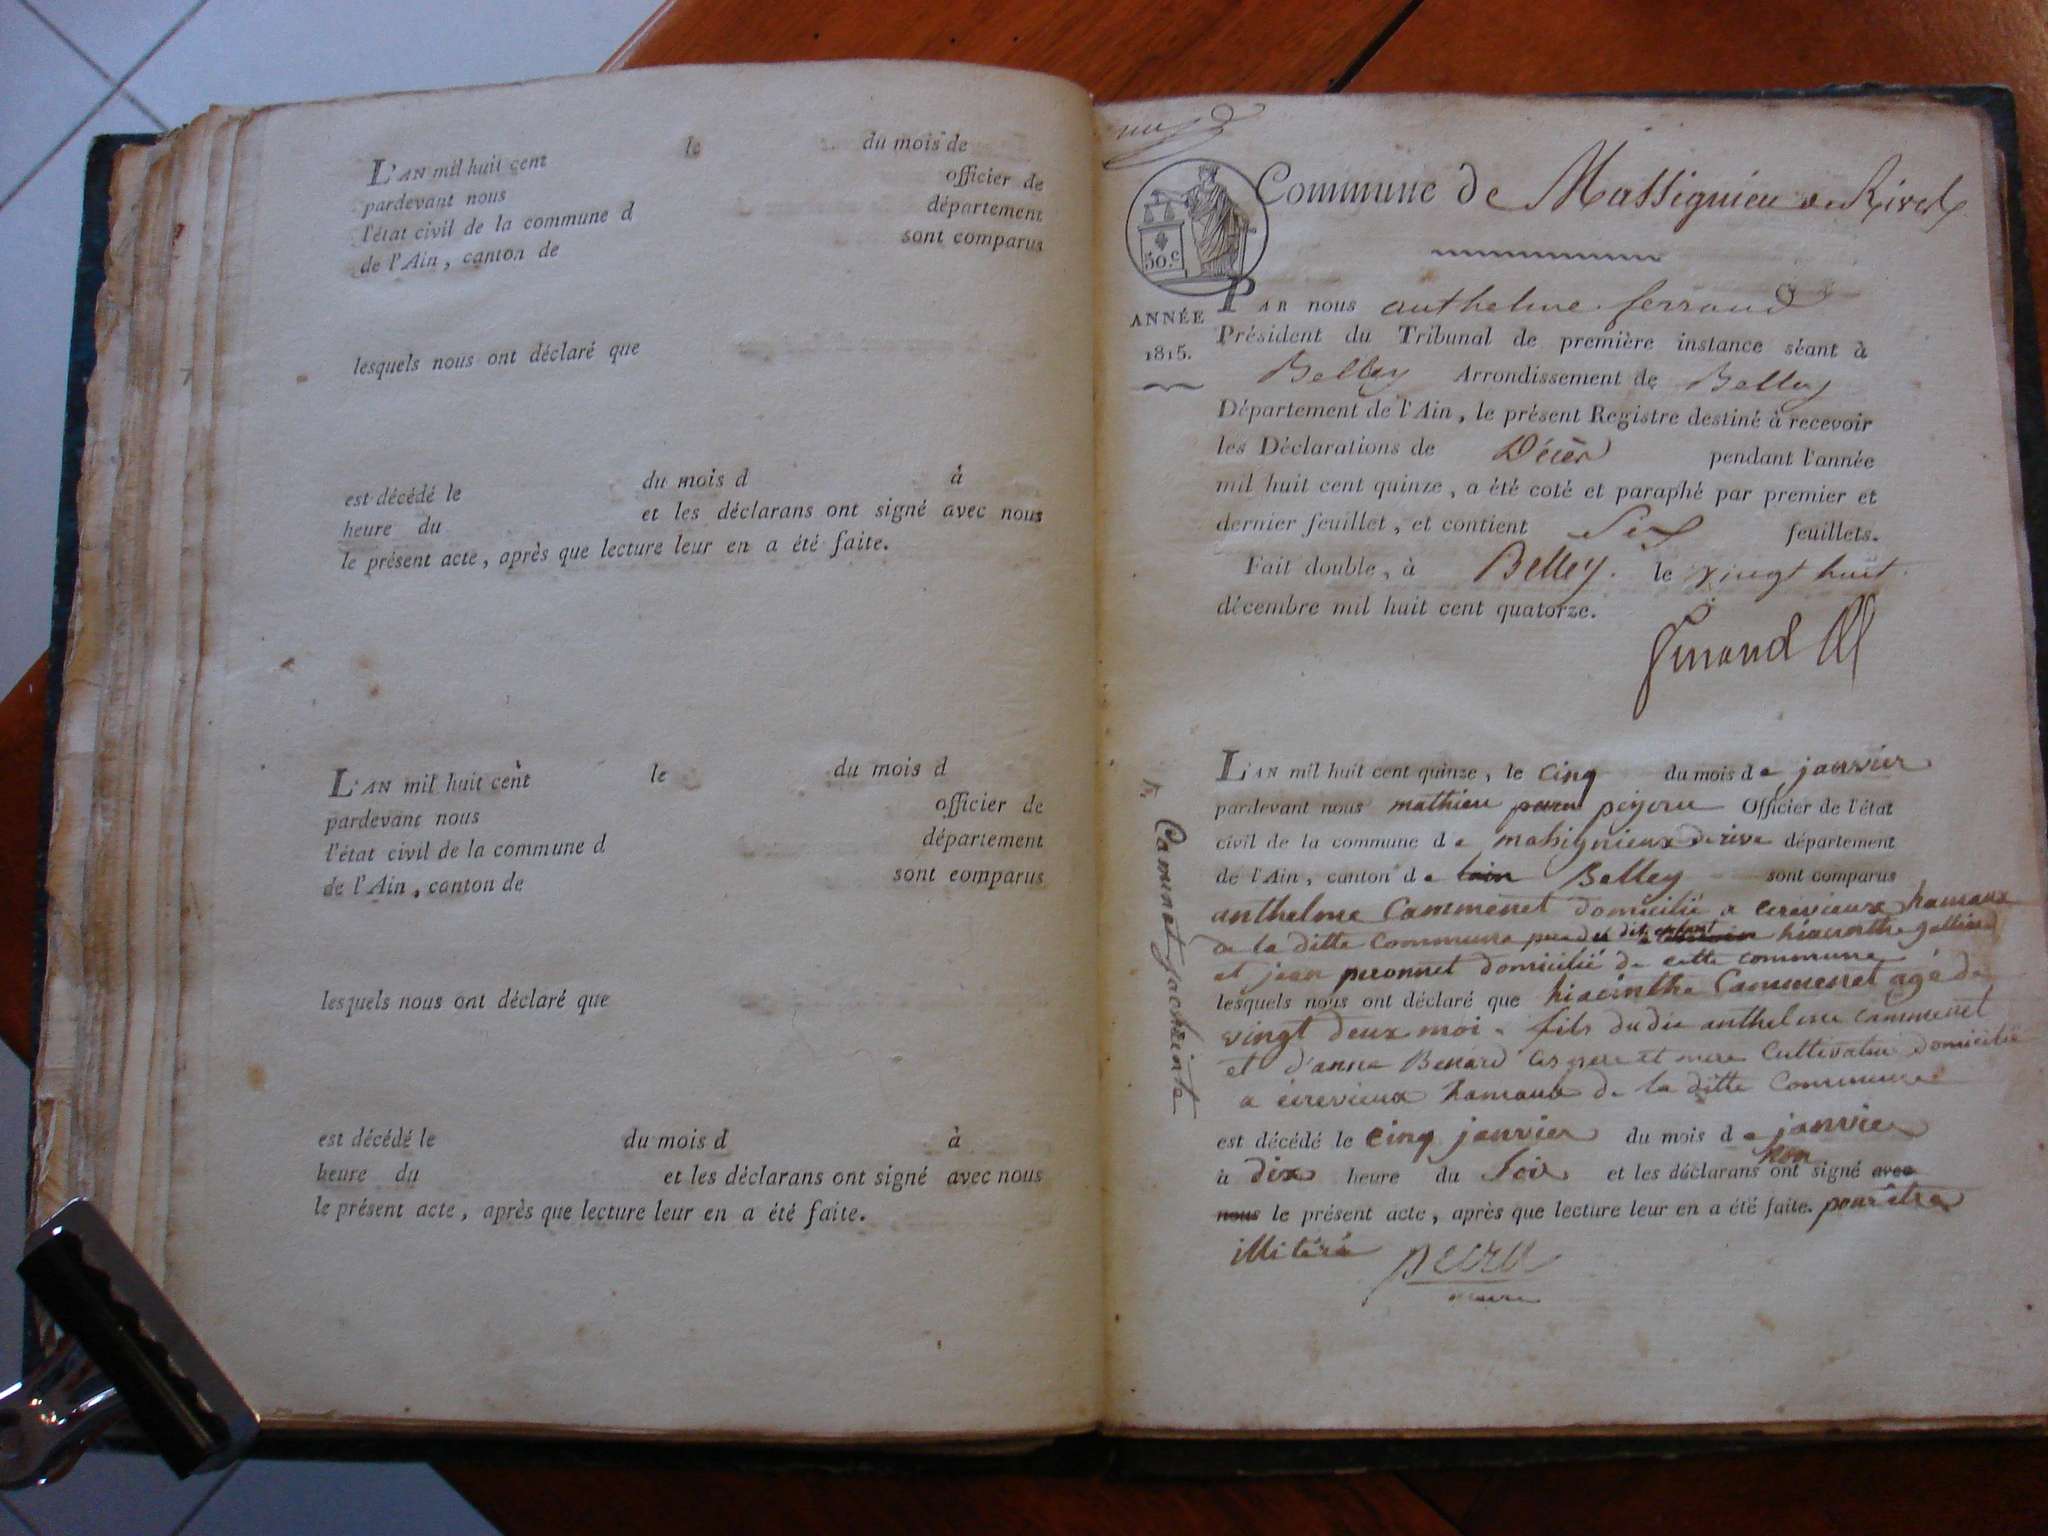 L'AN mil huit cent le du mois de
pardevant nous officier de
l'état civil de la commune d département
de l'Ain, canton de sont comparus
lesquels nous ont déclaré que
est décédé le du mois d à
heure du et les déclarans ont signé avec nous
le présent acte, après que lecture leur en a été faite.
L'AN mil huit cent le du mois d
pardevant nous officier de
l'état civil de la commune d département
de l'Ain, canton de sont comparus
lesquels nous ont déclaré que
est décédé le du mois d à
heure du et les déclarans ont signé avec nous
le présent acte, après que lecture leur en a été faite.
Commune de Massignieu de Rives
50.c
ANNÉE
1815.
PAR nous anthelme ferrand
Président du Tribunal de première instance séant à
Belley Arrondissement de Belley
Département de l'Ain, le présent Registre destiné à recevoir
les Déclarations de Décès pendant l'année
mil huit cent quinze, a été coté et paraphé par premier et
dernier feuillet, et contient Six feuillets.
Fait double, à Belley. le vingt huit
décembre mil huit cent quatorze.
L'AN mil huit cent quinze, le cinq du mois de janvier
pardevant nous mathieu Officier de l'état
civil de la commune de masignieux de rive département
de l'Ain, canton de Belley sont comparus
anthelme Cammenet domicilié a hamaux
de la ditte Commune dit enfant hiacinthe
et jean peronnet domicilié de cette commune
lesquels nous ont déclaré que hiacinthe Cammenet agé de
vingt deux moi fils dudit anthelme cammenet
et d'anne Benard ces pere et mere Cultivateur domicilié
a hamaux de la ditte Commune
est décédé le cinq janvier du mois de janvier
à dix heure du soir et les déclarans non ont signé avec
nous le présent acte, après que lecture leur en a été faite. pour être
illitéré
maire
Camenet